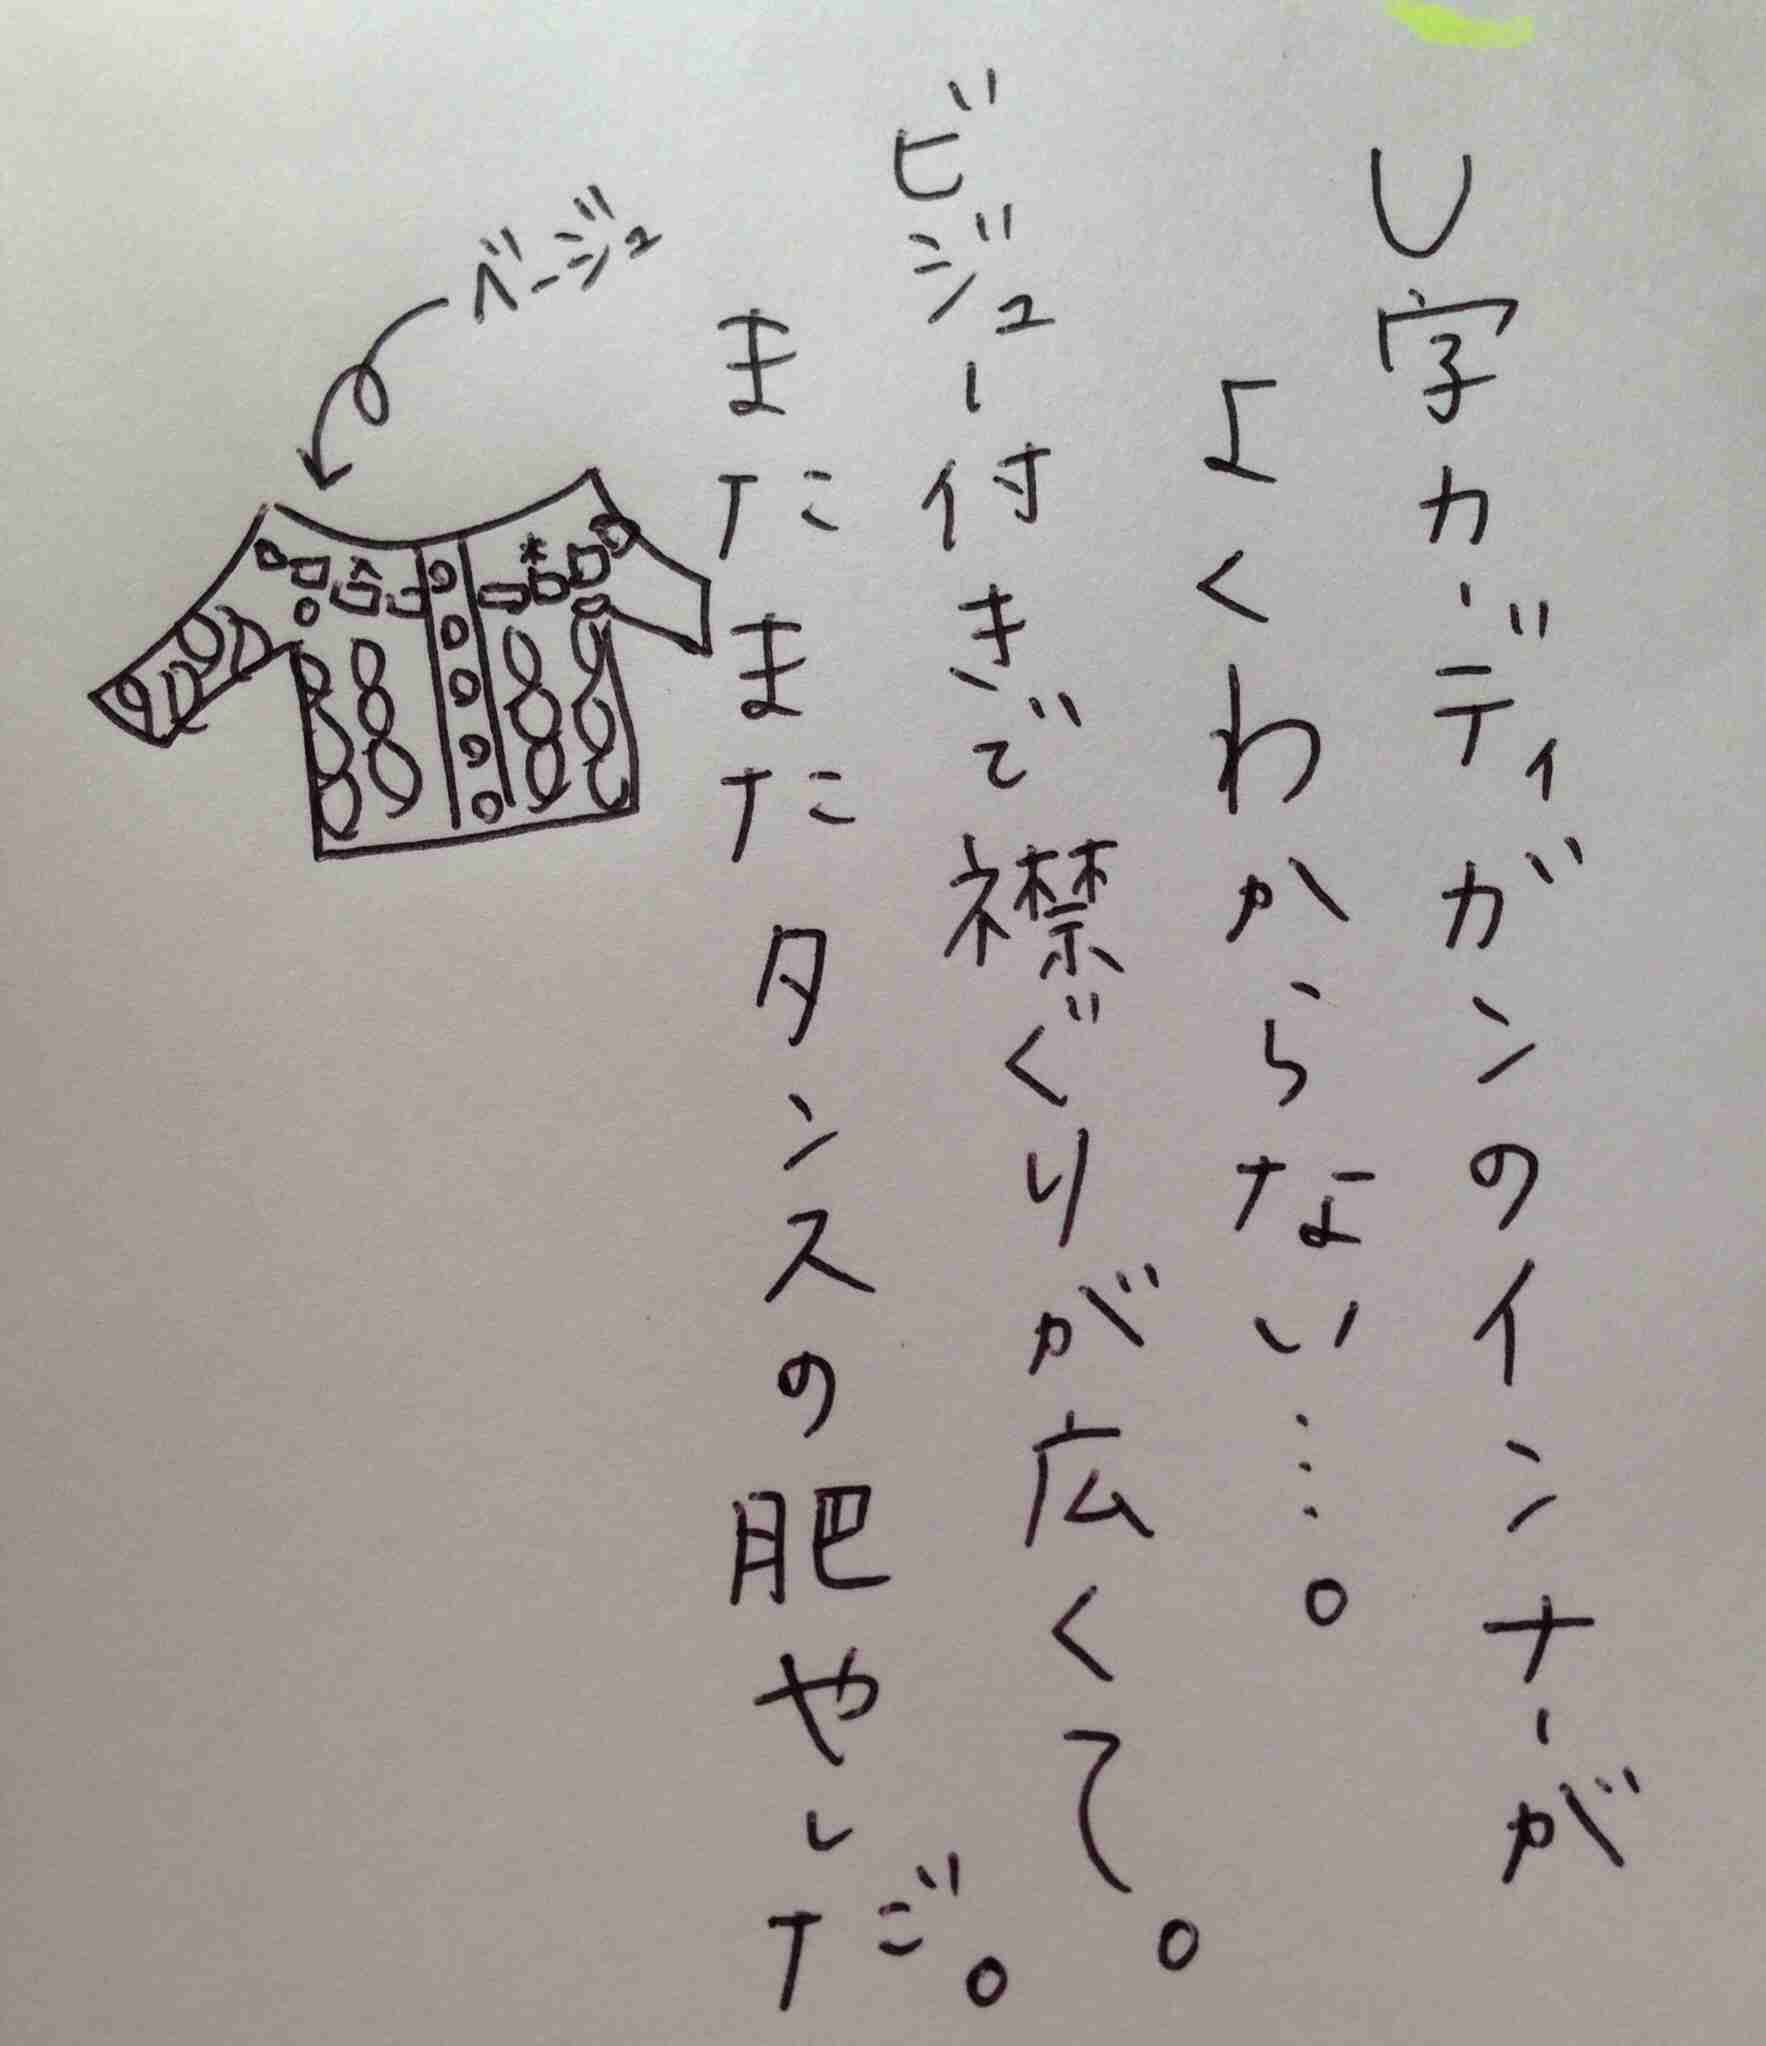 U字カーディガンのインナーが
よくわからない…。
ビジュー付きで襟ぐりが広くて。
まだまだタンスの肥やしだ。
ベージュ